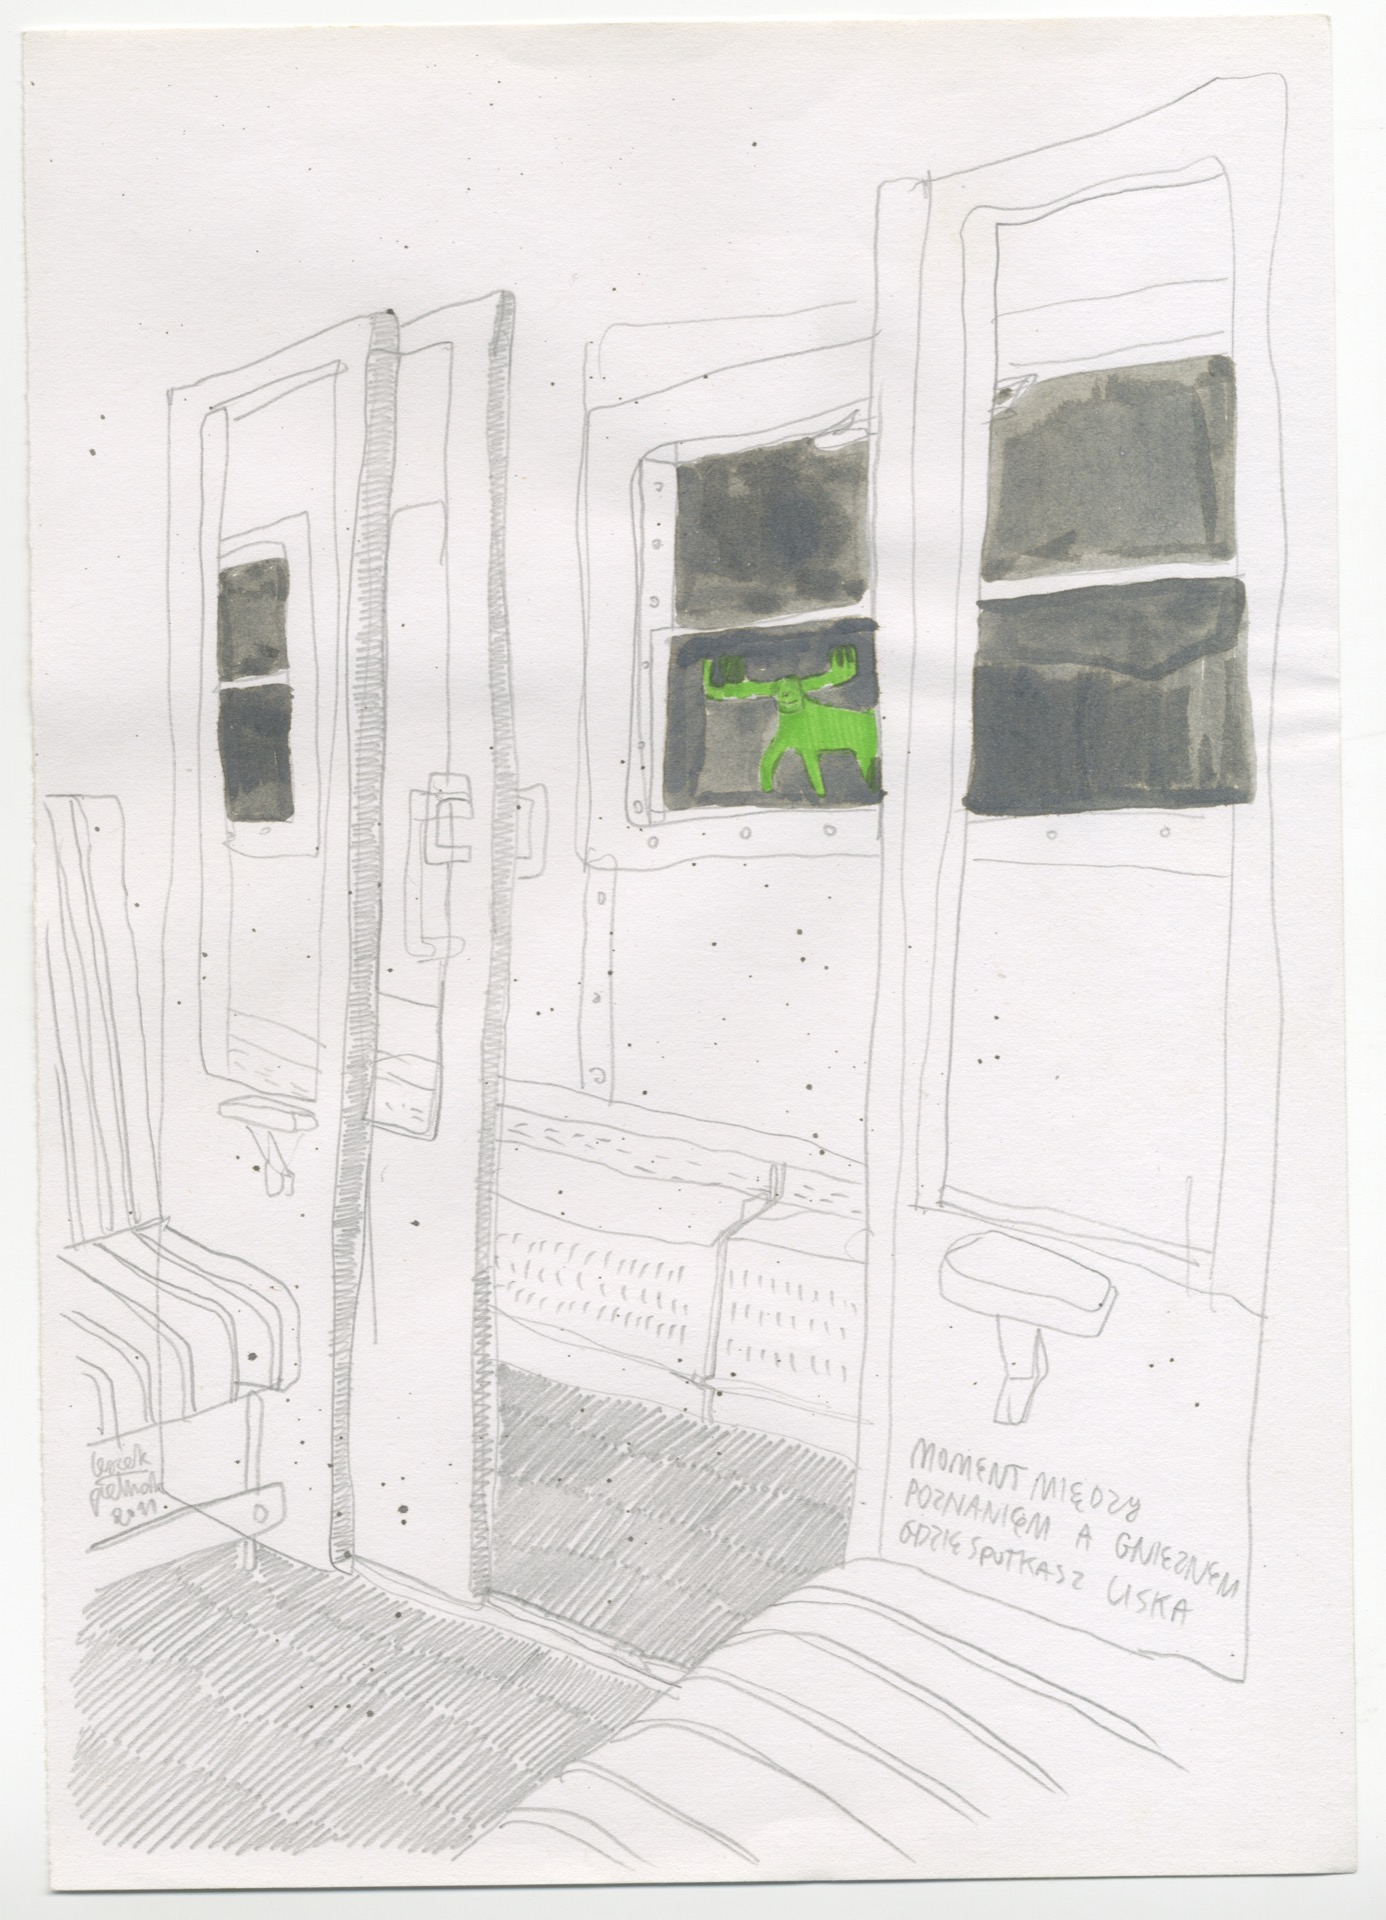 leszek
2011
MOMENT MIĘDZY
POZNANIEM A GNIEZNEM
GDZIE SPOTKASZ LISKA